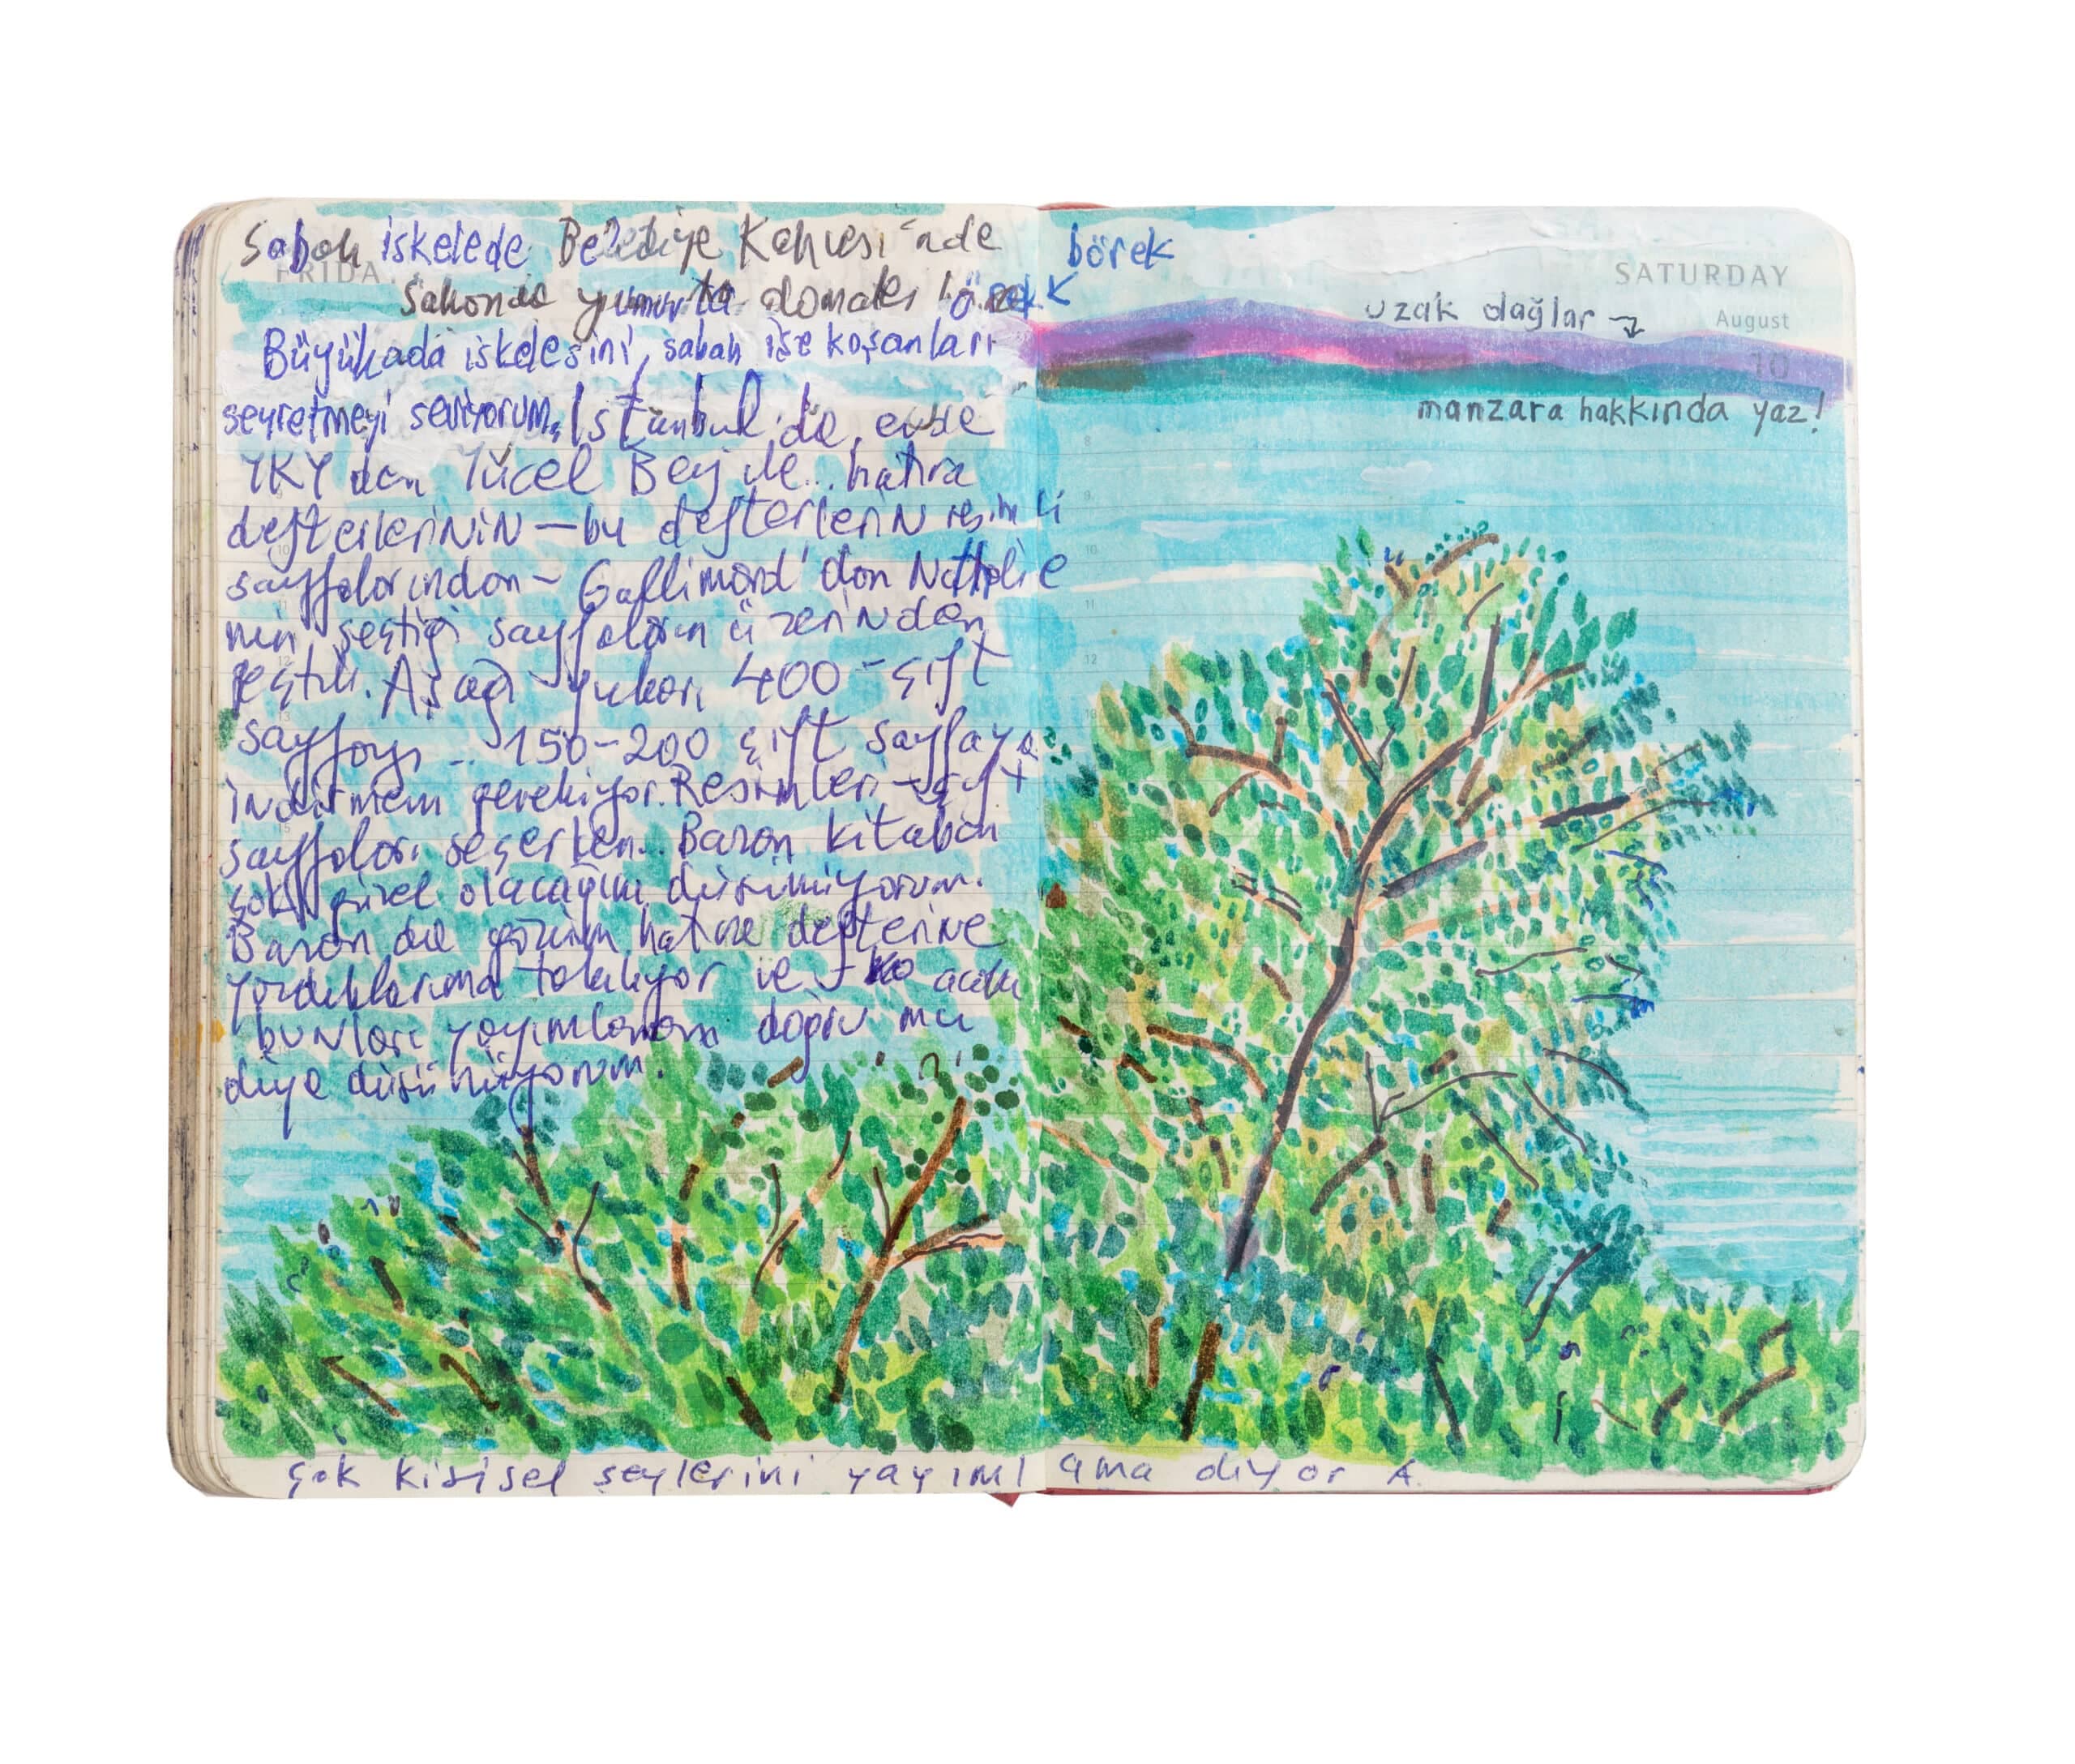 Sabah iskelede Belediye Kahvesi'nde
FRIDAY
sahanda yumurta domates börek
Büyükada iskelesini, sabah işe koşanları
seyretmeyi seviyorum. İstanbul'da, evde
YKY den Yücel Bey ile.. hatıra
defterlerinin — bu defterlerin resimli
sayfalarından – Gallimard'dan Nathalie
nin seçtiği sayfaların üzerinden
geçtik. Aşağı yukarı 400 - çift
sayfayı .. 150-200 çift sayfaya
indirmem gerekiyor. Resimleri – çift
sayfaları seçerken.. Bazan kitabın
çok güzel olacağını düşünüyorum.
Bazan da gözüm hatıra defterine
yazdıklarıma takılıyor ve acaba
bunları yayımlamam doğru mu
diye düşünüyorum.
börek
SATURDAY
uzak dağlar
August
10
manzara hakkında yaz!
8
9
10
11
12
çok kişisel şeylerini yayımlama diyor A.